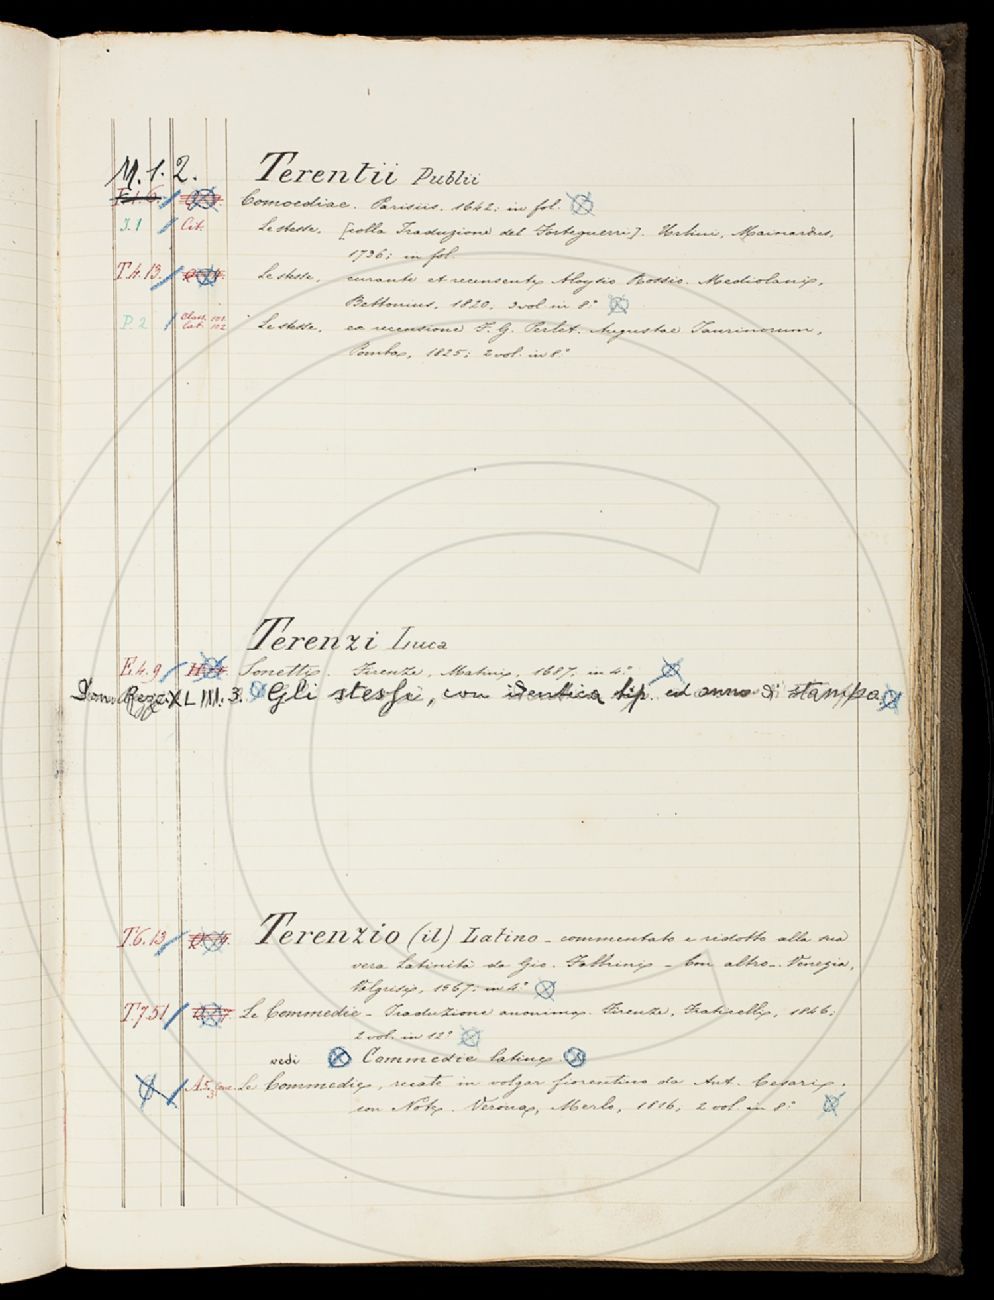 M. 1. 2. Terentii Publii
Comoediae. Parisiis, 1642; in fol.
I. 1 Cit. Le stesse, [colla Traduzione del Forteguerri]. Urbini, Mainardus,
1736; in fol.
T.4.13. Le stesse, curante et recensente Aloysio Rossio. Mediolani,
Bettonius, 1820, 3 vol. in 8°
P. 2 Class. 101 Lat. 102 Le stesse, ex recensione F. G. Perlet. Augustae Taurinorum,
Pomba, 1825; 2 vol. in 8°
Terenzi Luca
E.4.9 Sonetti. Firenze, Matini, 1687, in 4°
XLIII. 3. Gli stessi, con identica tip. ed anno di stampa.
T.6.13 Terenzio (il) Latino - commentato e ridotto alla sua
vera Latinità da Gio. Fabbrini - Con altro -. Venezia,
Valgrisi, 1567. in 4°
T.7.51 Le Commedie - Traduzione anonima. Firenze, Fraticelli, 1846;
2 vol. in 12°
vedi Commedie latine
Le Commedie, recate in volgar fiorentino da Ant. Cesari,
con Note. Verona, Merlo, 1816, 2 vol. in 8°